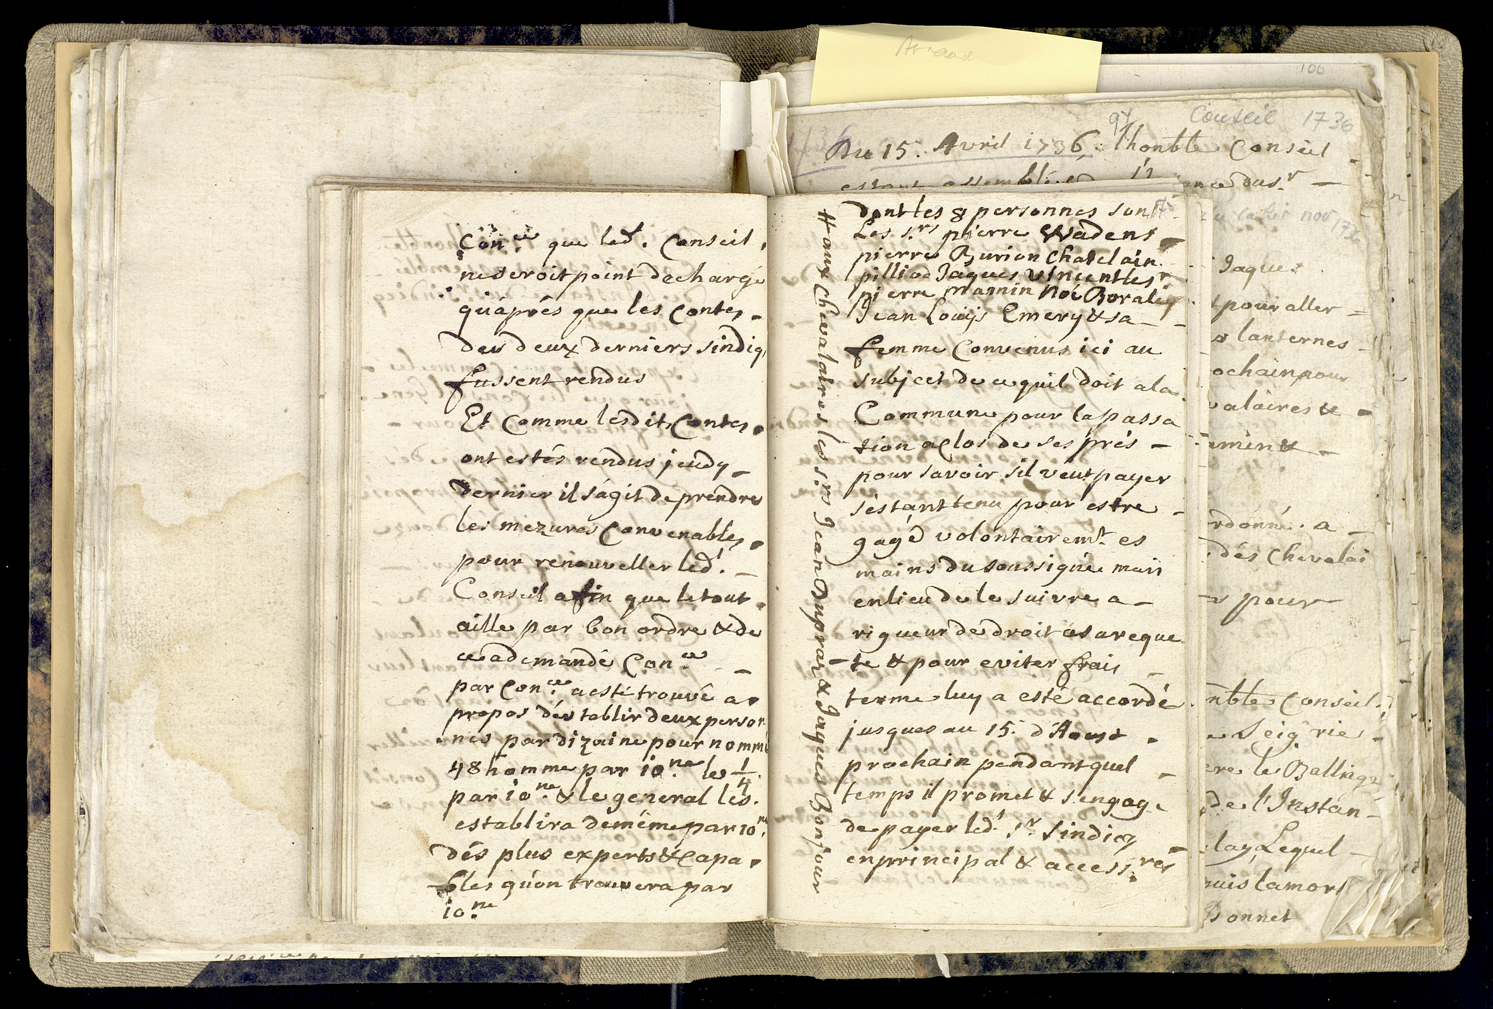 Con.ce que led.t Conseil
ne seroit point decharge
qu'aprés que les Contes
des deux derniers sindiq
fussent rendus
Et Comme lesdit Contes
ont estés rendus jeudy
dernier il s'agit de prendre
les mezures Convenables
pour renouveller led.t
Conseil afin que le tout
aille par bon ordre & de
ce a demandé Con.ce
par Con.ce a esté trouvé a
propos d'establir deux person
nes par dizaine pour nomm
48 homme par 10.ne le 1/4
par 10.ne & le general les
establira de même par 10.ne
dés plus experts & Capa
bles qu'on trouvera par
10.ne
dont les 8 personnes sont
Les s.rs pierre Wadens
pierre Burion Chatelain
pilliod Jaques Vincent les.r
pierre Mamin Noé Boraley
Jean Louÿs Emery & sa
femme Convenus ici au
subject de ce quil doit a la
Commune pour la passa
tion a clos de ses prés
pour savoir s'il veut payer
s'estant tenu pour estre
gagé volontairem.t es
mains du soussigné mais
en lieu de le suivre a
rigueur de droit a sa reque
te & pour eviter frais
terme luy a esté accordé
jusques au 15. d'Aoust
prochain pendant quel
temps il promet & s'engage
de payer led.t s.r sindiq
en principal & access.res
# aux Chevalaires les s.rs Jean Dupraz & Jaques Bonjour
Arraux
106
97 Conseil 1736
1736
Du 15. Avril 1736. l'honble Conseil
estant assemblé
Jaques
pour aller
lanternes
ochain pour
valaires &
ement
rdonné. a
dés Chevalai
pour
nble Conseil
Seig.rie
le Balling
de l'Instan
Lequel
puis la mort
Bonnet